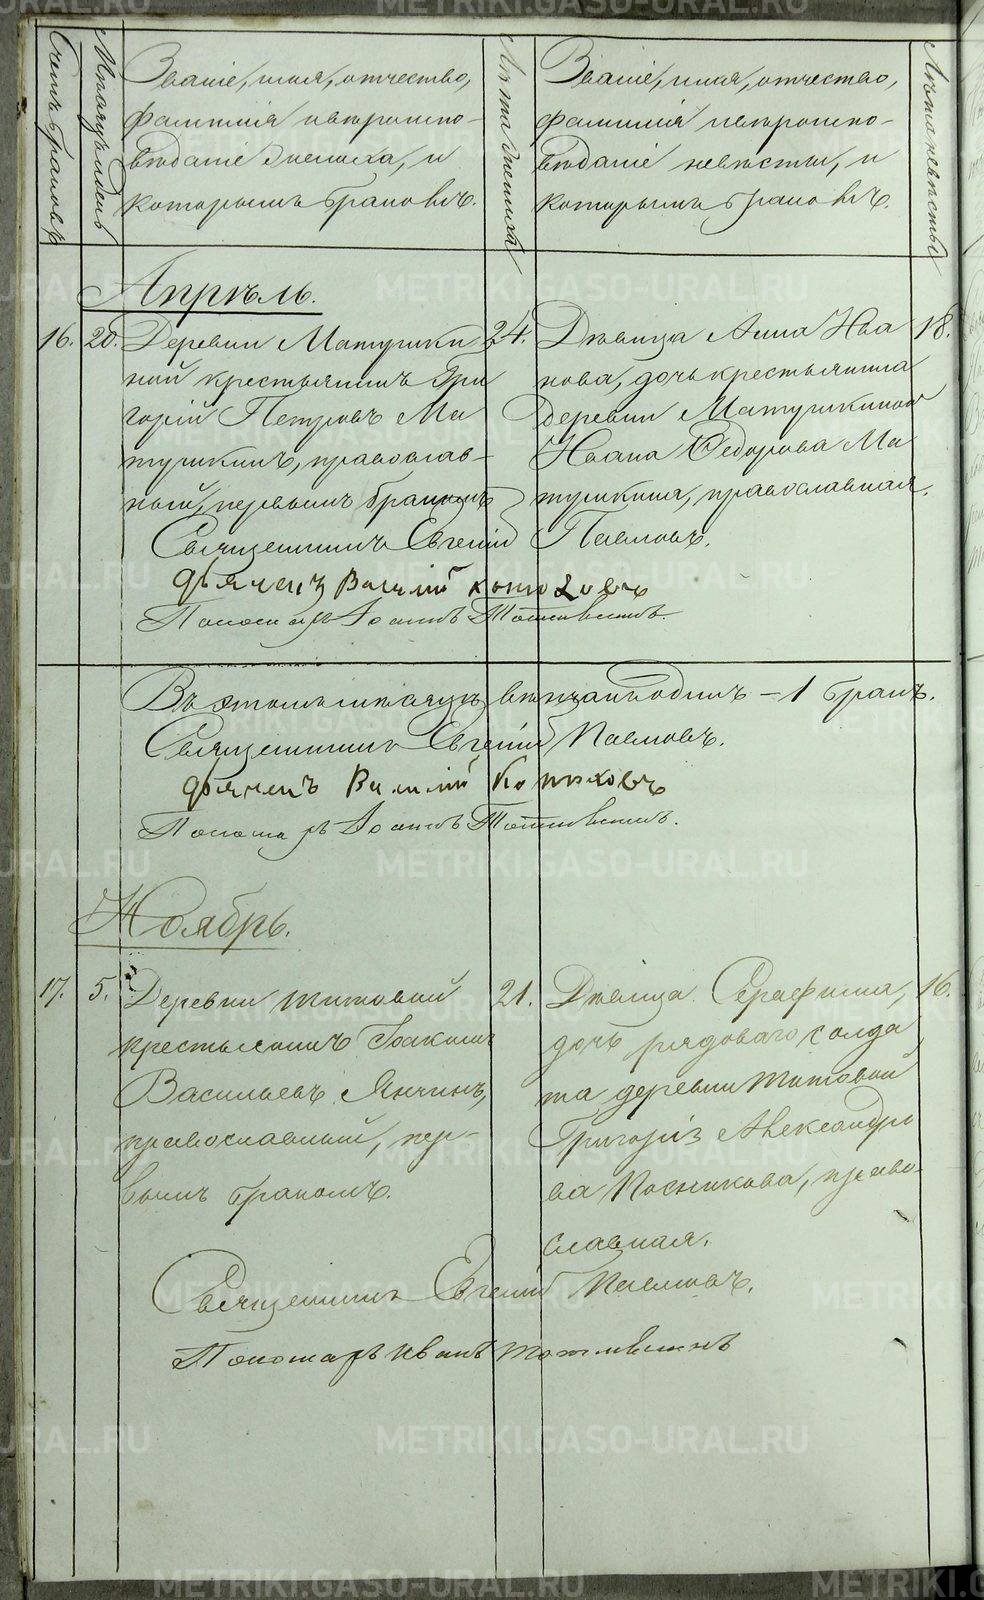 Счетъ браковъ
Мѣсяцъ и день
Званіе, имя, отчество,
фамилія и вѣроиспо-
вѣданіе жениха, и
которымъ бракомъ.
Лѣта жениха
Званіе, имя, отчество,
фамилія и вѣроиспо-
вѣданіе невѣсты, и
которымъ бракомъ.
Лѣта невѣсты
Апрѣль.
16. 20. Деревни Матушки
ной крестьянинъ Гри
горій Петровъ Ма
тушкинъ, православ-
ный, первымъ бракомъ
24.
Дѣвица Анна Ива
нова, дочь крестьянина
деревни Матушкиной
Ивана Ѳедорова Ма
тушкина, православная.
18.
Священникъ Евгеній Павловъ.
дьячекъ Василій
Пономарь Іоаннъ
Въ этомъ мѣсяцѣ вѣнчанъ одинъ – 1 бракъ.
Священникъ Евгеній Павловъ.
дьячекъ Василій
Пономарь Іоаннъ
Ноябрь.
17. 5. Деревни Титовой
крестьянинъ Іоакимъ
Васильевъ Янчинъ,
православный, пер-
вымъ бракомъ.
21.
Дѣвица Серафима,
дочь рядоваго солда
та деревни Титовой
Григорія Александро
ва Посникова, право-
славная.
16.
Священникъ Евгеній Павловъ.
Пономарь Иванъ
METRIKI.GASO-URAL.RU